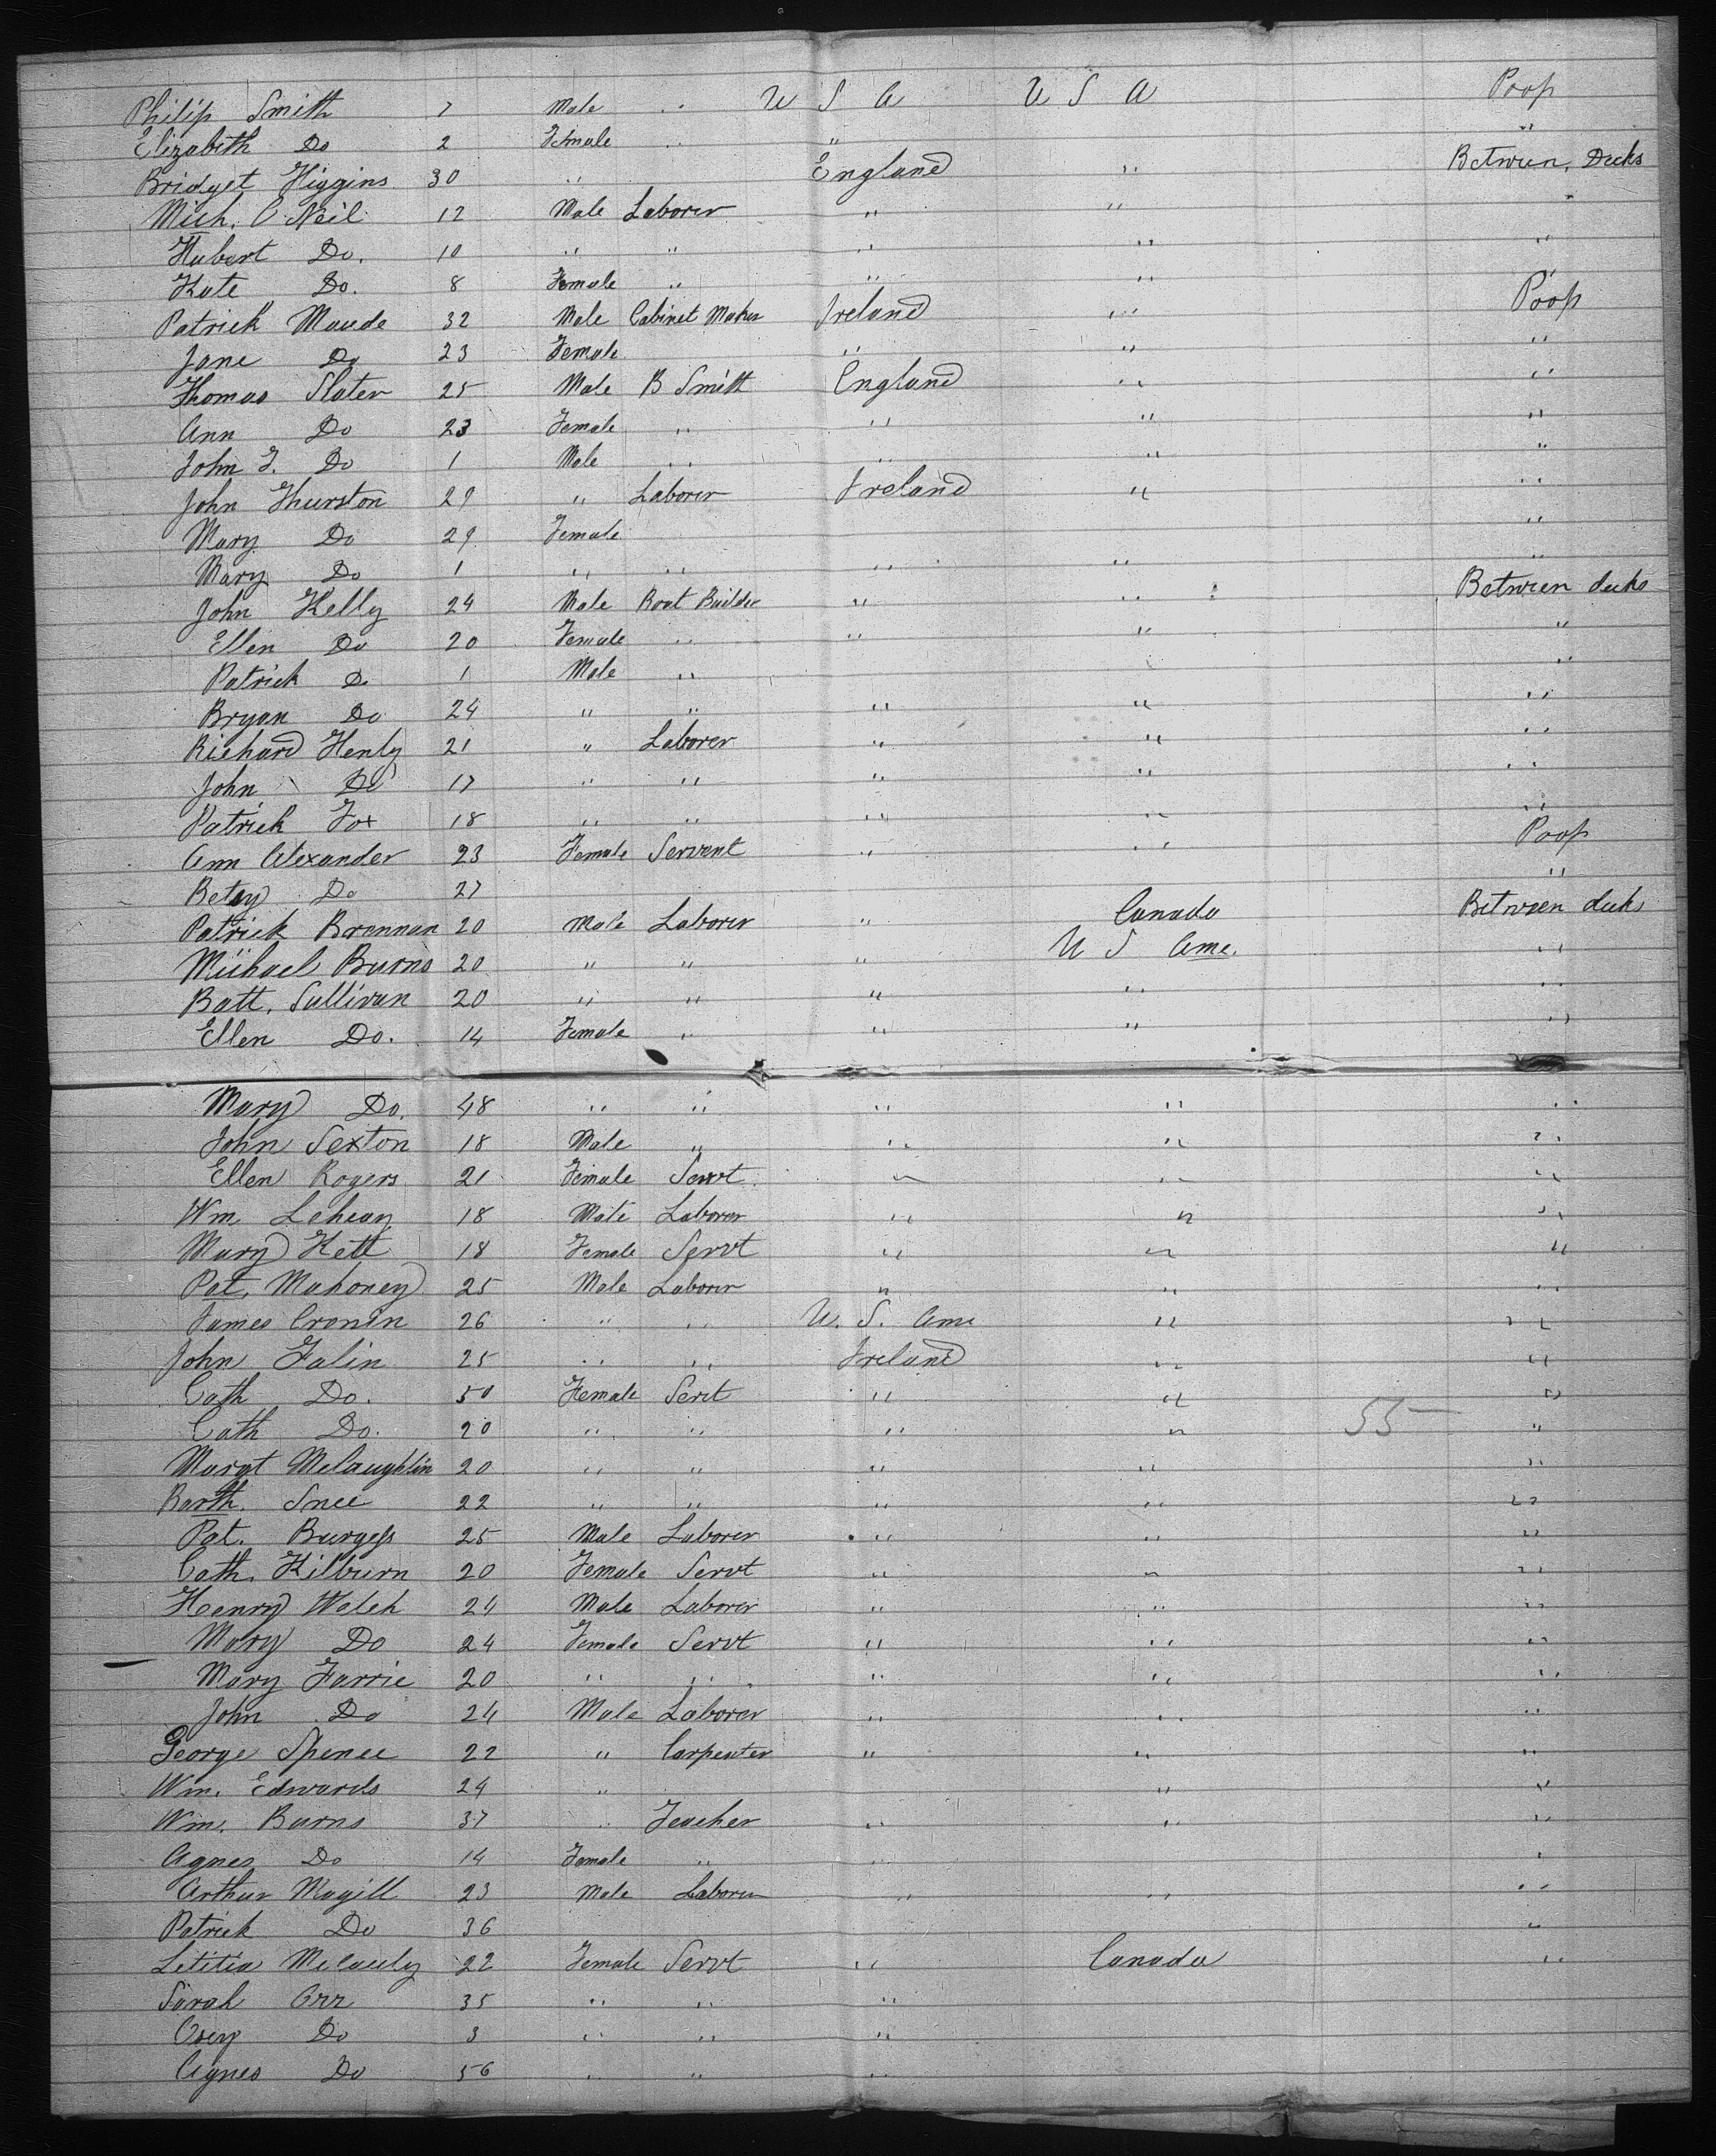 Philip Smith 7 Male " U S A U S A Poop
Elizabeth Do 2 Female " " "
Bridget Higgins 30 " England " Between Decks
Mich. O Neil 12 Male Laborer " " "
Hubert Do. 10 " " " " "
Kate Do. 8 Female " " " "
Patrick Maude 32 Male Cabinet Maker Ireland " Poop
Jane Do 23 Female " " "
Thomas Slater 25 Male B Smith England " "
Ann Do 23 Female " " " "
John T. Do 1 Male " " " "
John Thurston 29 " Laborer Ireland " "
Mary Do 29 Female "
Mary Do 1 " " " " "
John Kelly 24 Male Boat Builder " " Between decks
Ellen Do 20 Female " " " "
Patrick Do 1 Male " " "
Bryan Do 24 " " " " "
Richard Henly 21 " Laborer " " "
John Do 17 " " " " "
Patrick Fox 18 " " " " "
Ann Alexander 23 Female Servent " " Poop
Betsy Do 27 "
Patrick Brennan 20 Male Laborer " Canada Between decks
Michael Burns 20 " " " U S Ame. "
Batt. Sullivan 20 " " " " "
Ellen Do. 14 Female " " " "
Mary Do. 48 " " " " "
John Sexton 18 Male " " " "
Ellen Rogers 21 Female Servt " " "
Wm Lehean 18 Male Laborer " " "
Mary Kett 18 Female Servt " " "
Pat. Mahoney 25 Male Laborer " " "
James Cronin 26 " " U. S. Ame " "
John Falin 25 " " Ireland " "
Cath Do. 50 Female Servt " " "
Cath Do. 20 " " " " 55 "
Margt McLaughlin 20 " " " " "
Barth. Snee 22 " " " " "
Pat. Burgess 25 Male Laborer " " "
Cath. Kilburn 20 Female Servt " " "
Henry Welch 24 Male Laborer " " "
Mary Do 24 Female Servt " " "
Mary Farrie 20 " " " " "
John Do 24 Male Laborer " " "
George Spence 22 " Carpenter " " "
Wm. Edwards 24 " " "
Wm. Burns 37 " Teacher " " "
Agnes Do 14 Female " " "
Arthur Magill 23 Male Laborer " " "
Patrick Do 36 "
Letitia McCauly 22 Female Servt " Canada "
Sarah Orr 35 " " "
Do 3 " " "
Agnes Do 56 " " "